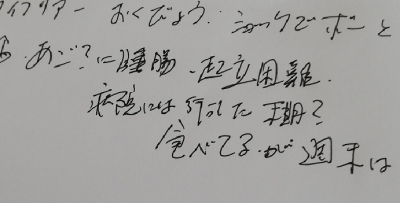 ァイフリアー おくびょう、ショックでボーと
あご？に腫瘍、起立困難
病院には行った 末期？
食べてるが 週末は